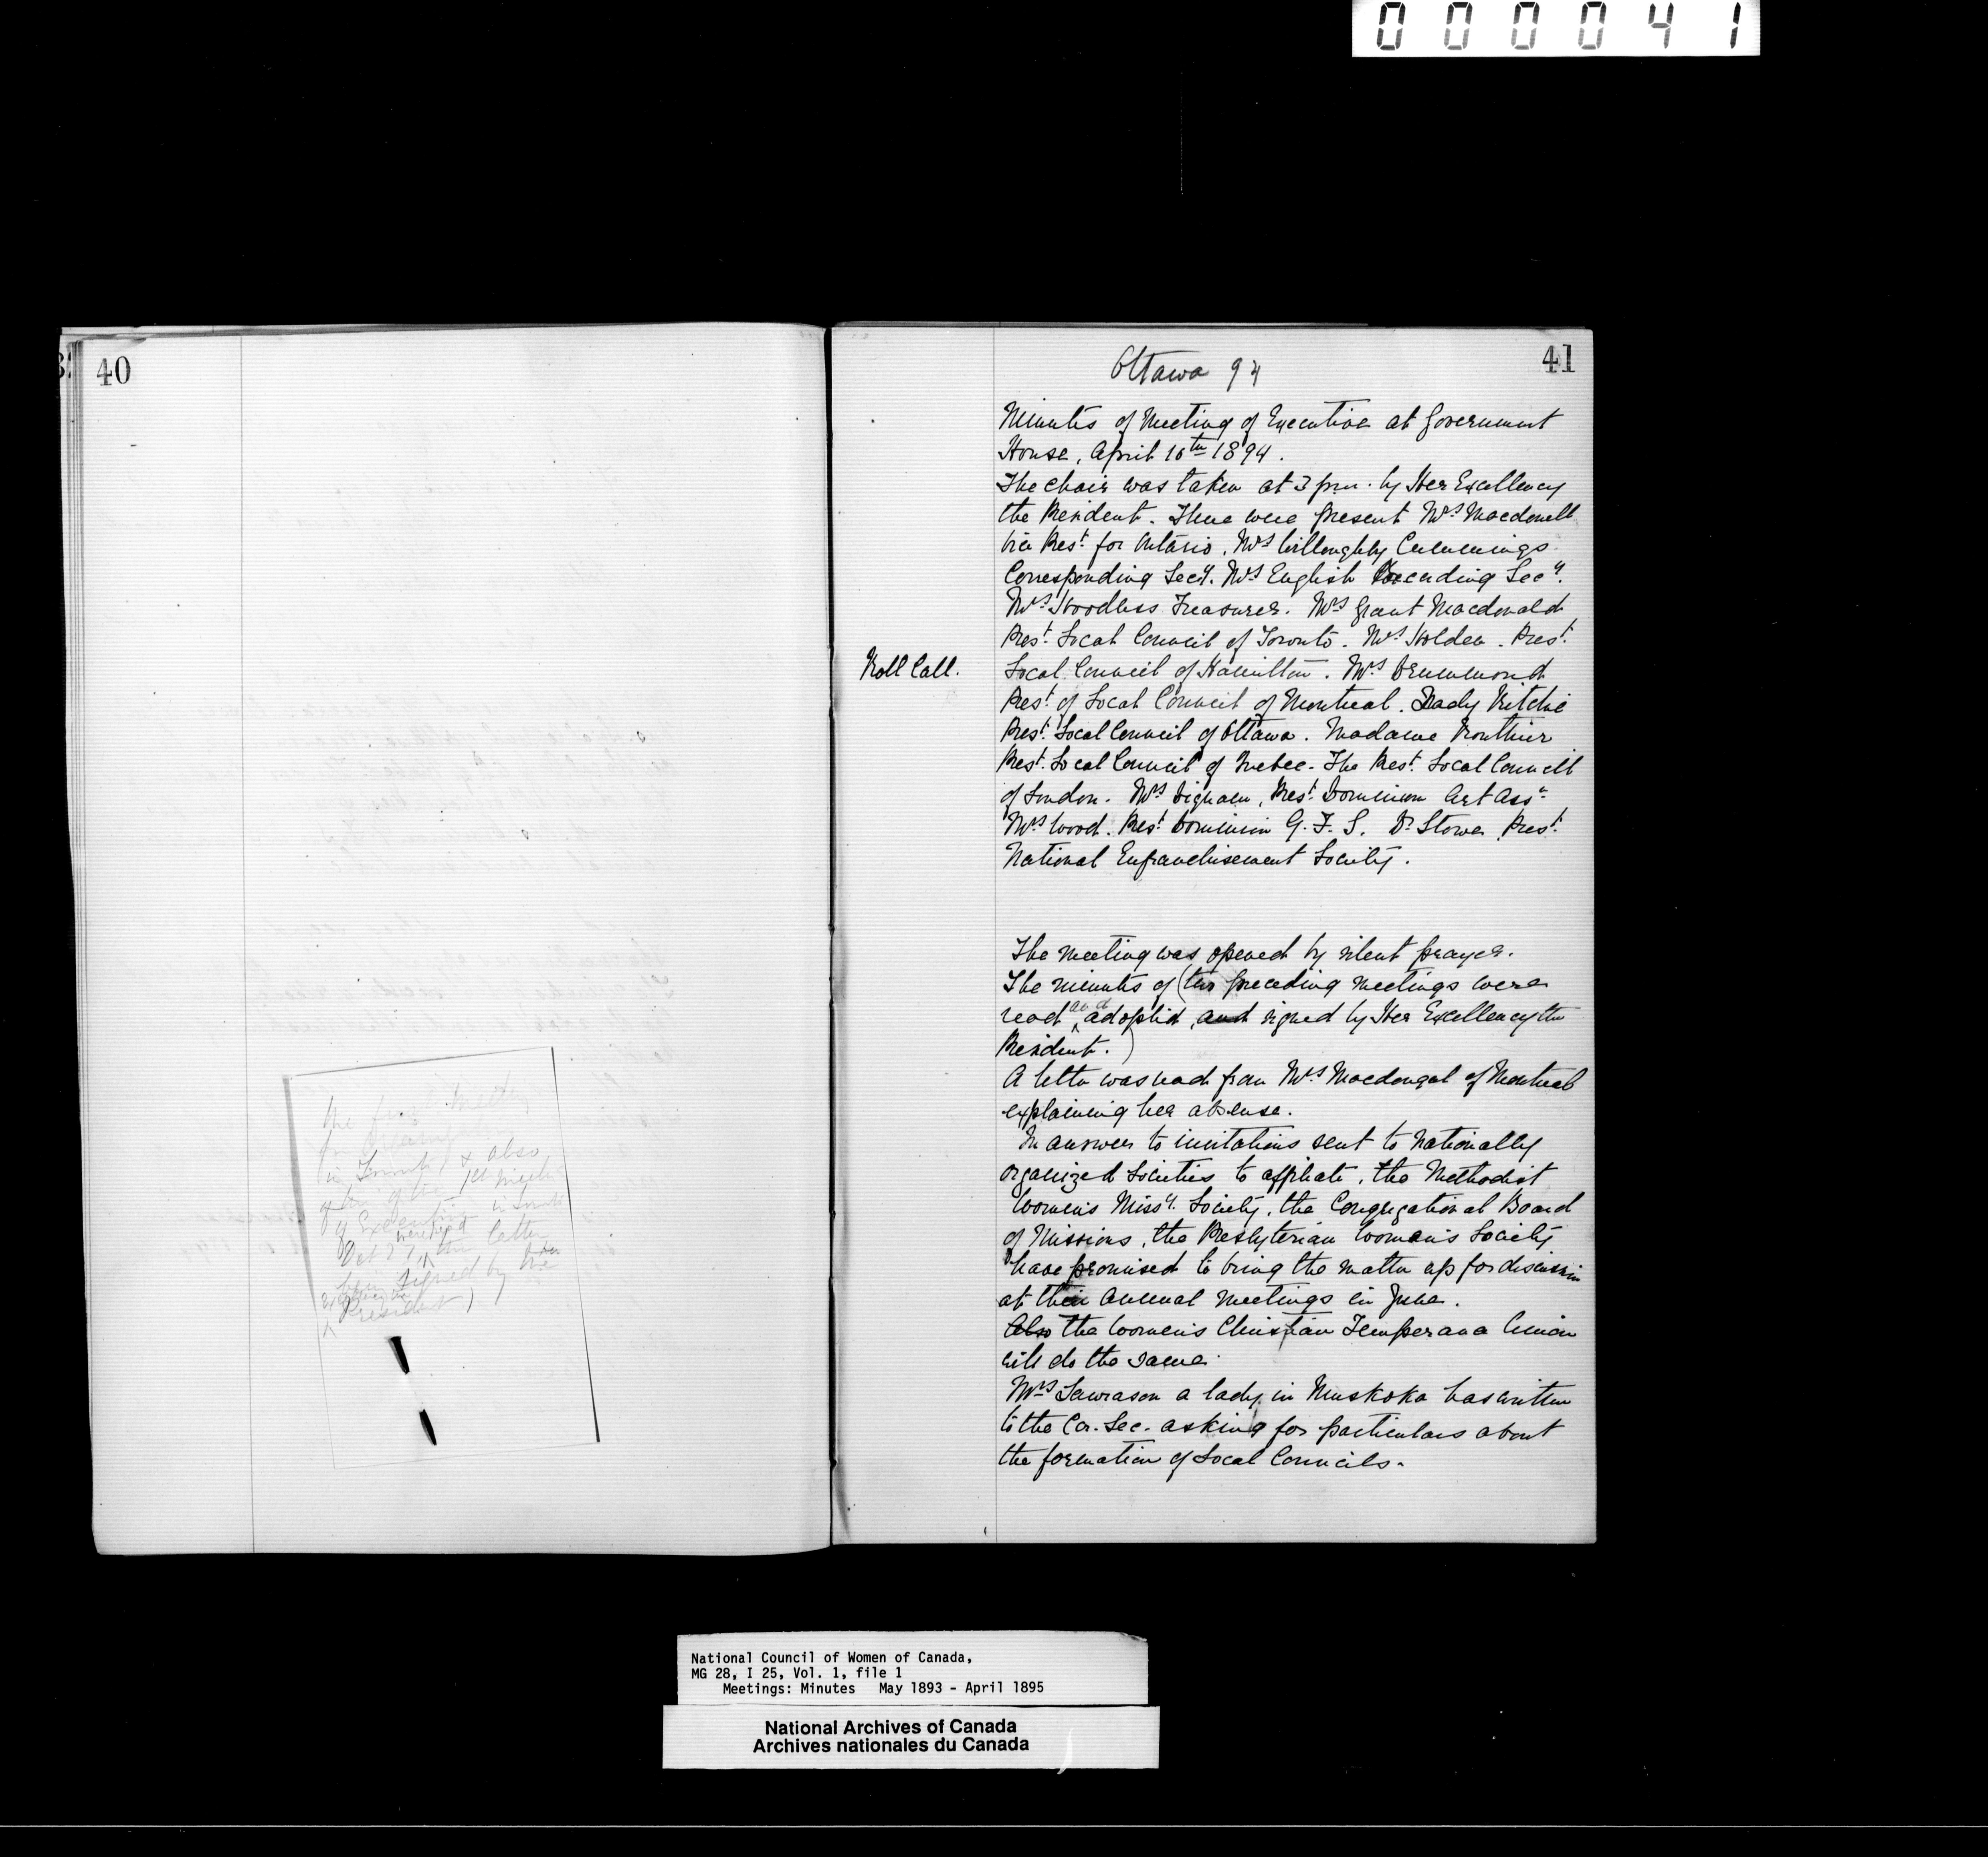 000041
40
the first meeting
in Toronto & also
of Executive in
Oct 27, the letter
were read
been signed by the
President)
41
Ottawa 94
Minutes of Meeting of Executive at Government
House, April 16th 1894.
The chair was taken at 3 p.m. by Her Excellency
the President. There were present Mrs Macdonell
Vice Prest. for Ontario, Mrs Willoughby Cummings
Corresponding Secy. Mrs English Recording Secy.
Mrs Hoodless Treasurer. Mrs Grant Macdonald
Prest. Local Council of Toronto. Mrs Holden. Prest.
Roll Call.
Local Council of Hamilton. Mrs Drummond
Prest. of Local Council of Montreal. Lady Ritchie
Prest. Local Council of Ottawa. Madame Routhier
Prest. Local Council of Quebec. The Prest. Local Council
of London. Mrs Dignam, Prest. Dominion Art Assn.
Mrs Wood. Prest. Dominion G. F. S. Dr Stowe Prest.
National Enfranchisement Society.
The meeting was opened by silent prayer.
The minutes of (the preceding meetings were
read and adopted, and signed by Her Excellency the
President.)
A letter was read from Mrs Macdougal of Montreal
explaining her absense.
In answer to invitations sent to Nationally
organized Societies to affiliate, the Methodist
Women's Missy. Society, the Congregational Board
of Missions, the Presbyterian Women's Society
have promised to bring the matter up for discussion
at their Annual Meetings in June.
Also the Women's Christian Temperance Union
will do the same.
Mrs Lawrason a lady in Muskoka has written
to the Cor. Sec. asking for particulars about
the formation of Local Councils.
National Council of Women of Canada,
MG 28, I 25, Vol. 1, file 1
Meetings: Minutes May 1893 - April 1895
National Archives of Canada
Archives nationales du Canada